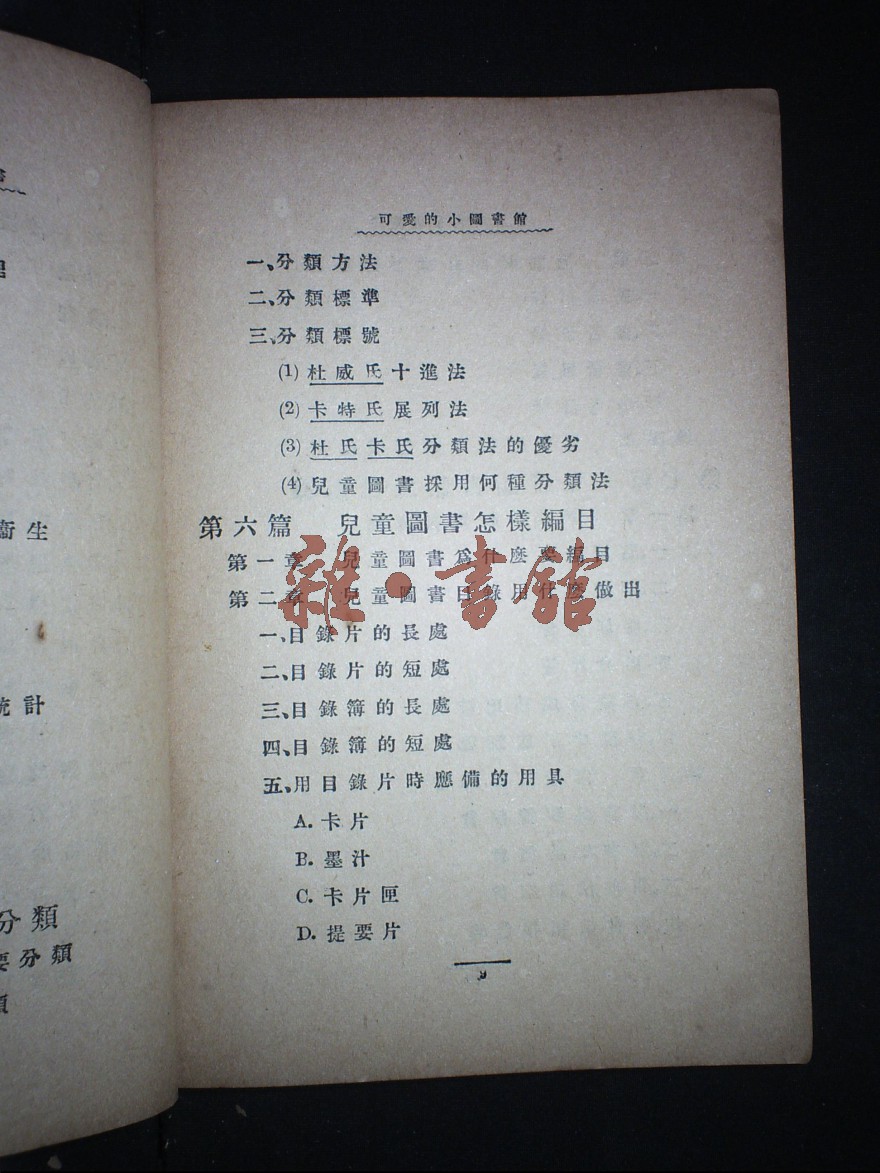 可愛的小圖書館
一、分類方法
二、分類標準
三、分類標號
(1) 杜威氏十進法
(2) 卡特氏展列法
(3) 杜氏卡氏分類法的優劣
(4) 兒童圖書採用何種分類法
第六篇 兒童圖書怎樣編目
第一章 兒童圖書爲什麽要編目
第二章 兒童圖書目錄用什麽做出
一、目錄片的長處
二、目錄片的短處
三、目錄簿的長處
四、目錄簿的短處
五、用目錄片時應備的用具
A. 卡片
B. 墨汁
C. 卡片匣
D. 提要片
9
雜·書館
衞生
統計
分類
要分類
類